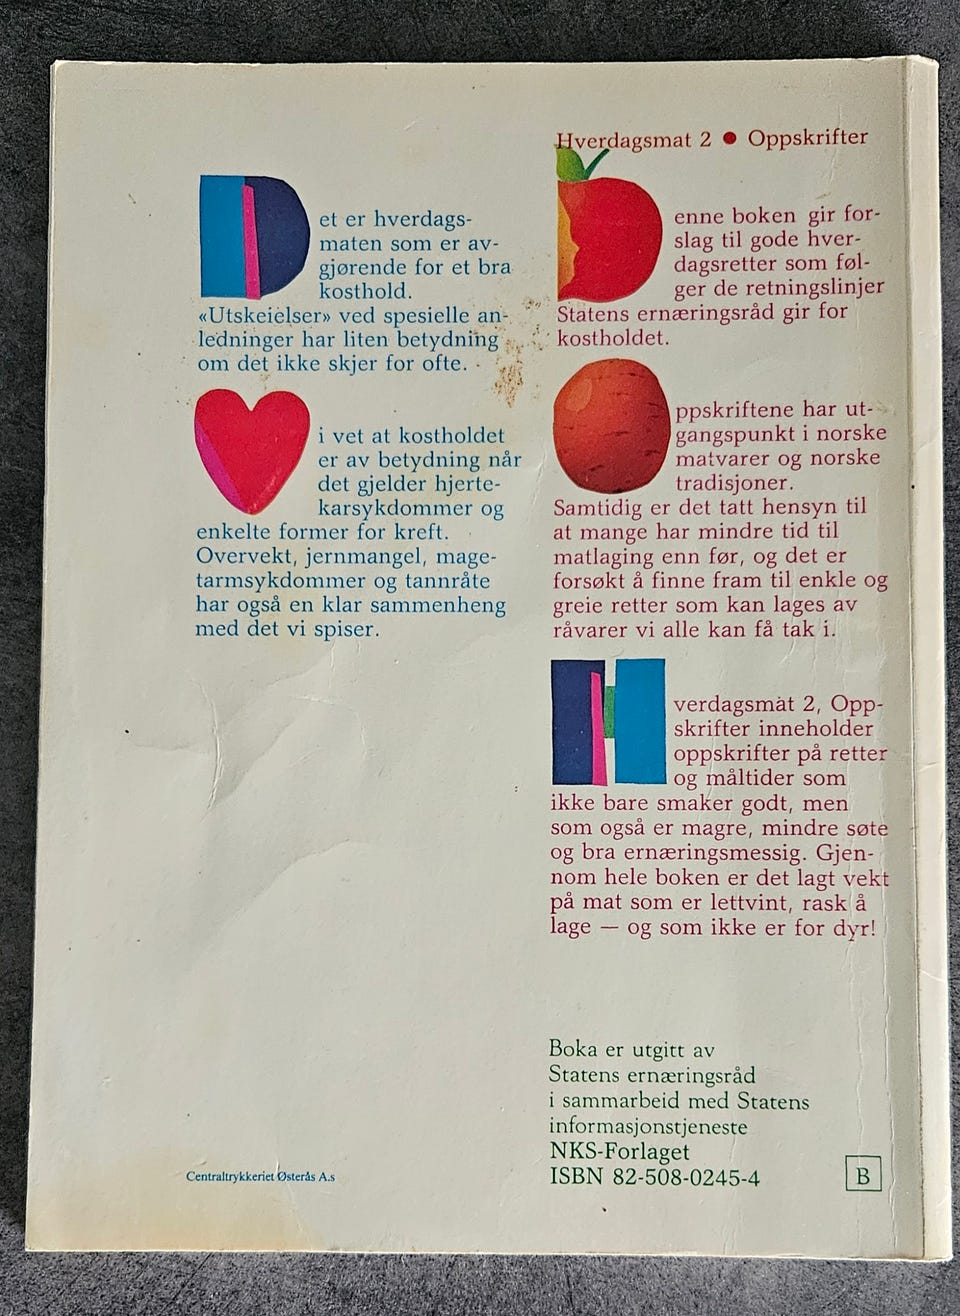 Hverdagsmat 2 ● Oppskrifter
Det er hverdags-
maten som er av-
gjørende for et bra
kosthold.
«Utskeielser» ved spesielle an-
ledninger har liten betydning
om det ikke skjer for ofte.
Vi vet at kostholdet
er av betydning når
det gjelder hjerte-
karsykdommer og
enkelte former for kreft.
Overvekt, jernmangel, mage-
tarmsykdommer og tannråte
har også en klar sammenheng
med det vi spiser.
Denne boken gir for-
slag til gode hver-
dagsretter som føl-
ger de retningslinjer
Statens ernæringsråd gir for
kostholdet.
Oppskriftene har ut-
gangspunkt i norske
matvarer og norske
tradisjoner.
Samtidig er det tatt hensyn til
at mange har mindre tid til
matlaging enn før, og det er
forsøkt å finne fram til enkle og
greie retter som kan lages av
råvarer vi alle kan få tak i.
Hverdagsmat 2, Opp-
skrifter inneholder
oppskrifter på retter
og måltider som
ikke bare smaker godt, men
som også er magre, mindre søte
og bra ernæringsmessig. Gjen-
nom hele boken er det lagt vekt
på mat som er lettvint, rask å
lage — og som ikke er for dyr!
Boka er utgitt av
Statens ernæringsråd
i sammarbeid med Statens
informasjonstjeneste
NKS-Forlaget
ISBN 82-508-0245-4
B
Centraltrykkeriet Østerås A.s